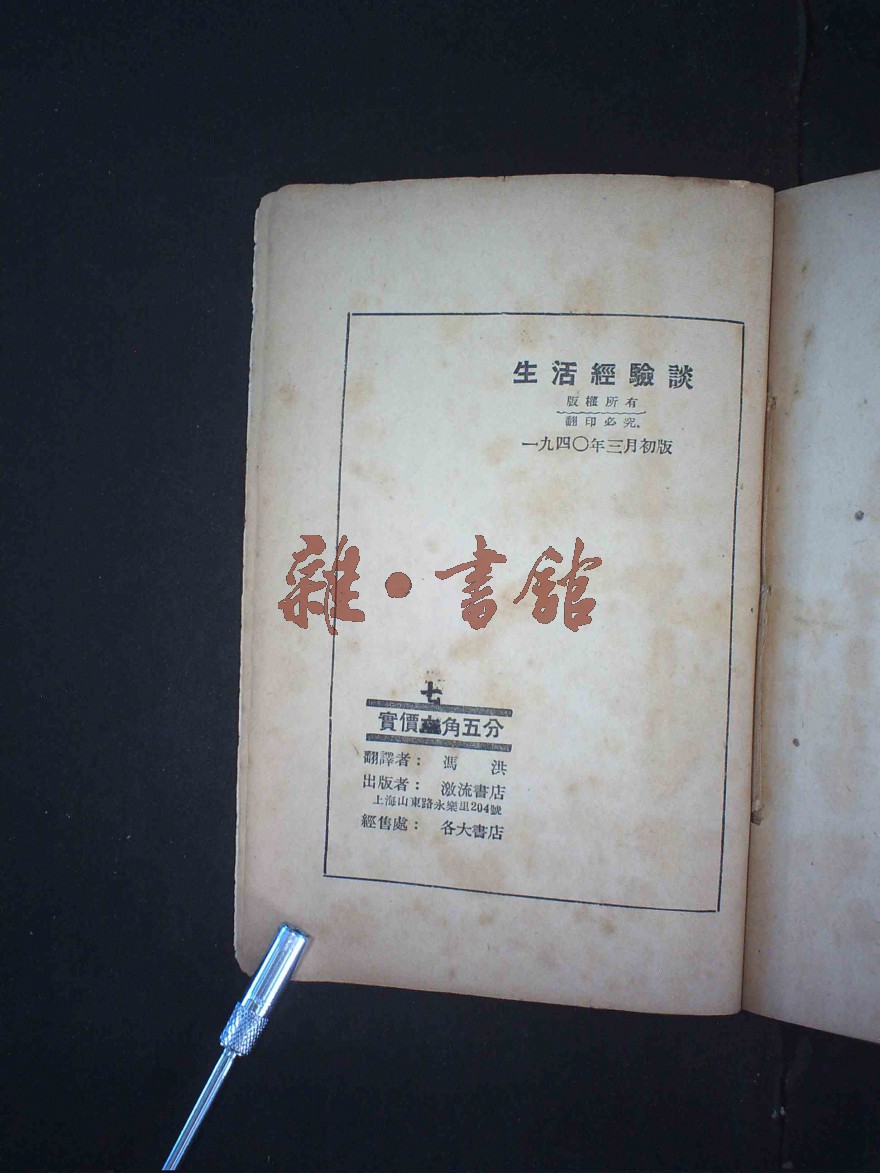 生活經驗談
版權所有
翻印必究
一九四〇年三月初版
雜·書館
七
實價角五分
翻譯者：馮洪
出版者：激流書店
上海山東路永樂里204號
經售處：各大書店